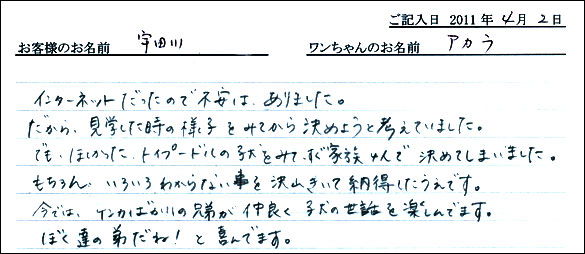 ご記入日 2011年 4月 2日
お客様のお名前 宇田川 ワンちゃんのお名前 アカラ
インターネットだったので不安は、ありました。
だから、見学した時の様子をみてから決めようと考えていました。
でも、ほしかった、トイプードルの子犬をみて、すぐ家族みんで決めてしまいました。
もちろん、いろいろわからない事を沢山きいて納得したうえです。
今では、ケンカばかりの兄弟が仲良く子犬の世話を楽しんでます。
ぼく達の弟だね!と喜んでます。